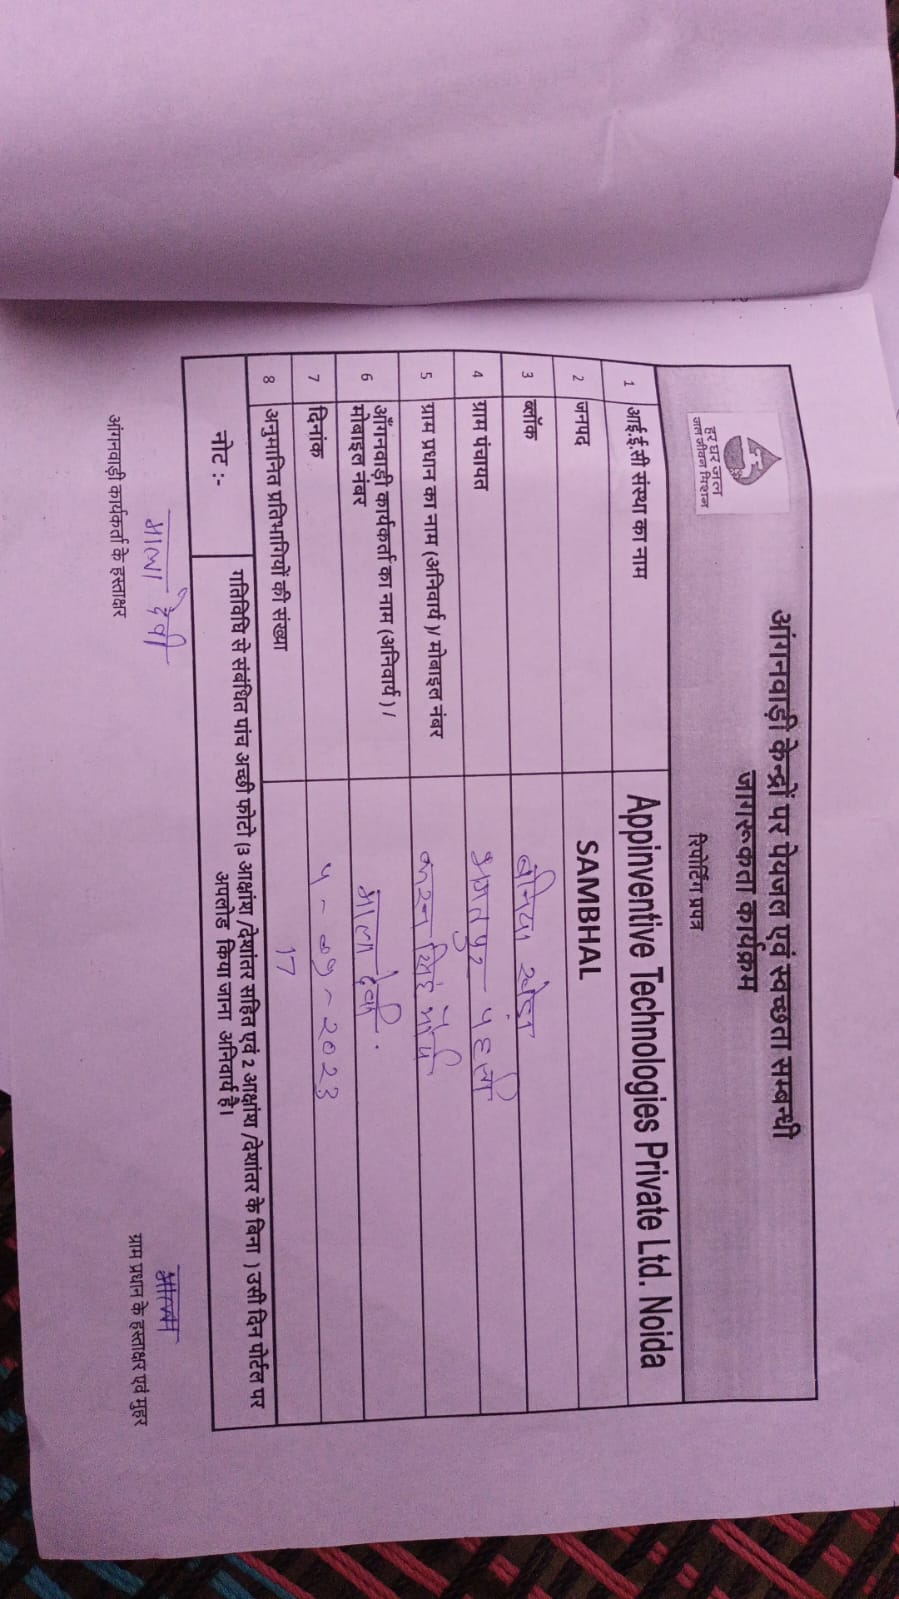 हर घर जल
जल जीवन मिशन
आंगनवाड़ी केन्द्रों पर पेयजल एवं स्वच्छता सम्बन्धी
जागरूकता कार्यक्रम
रिपोर्टिंग प्रपत्र
1 आई.ई.सी संस्था का नाम Appinventive Technologies Private Ltd. Noida
2 जनपद SAMBHAL
3 ब्लॉक बनिया खेड़ा
4 ग्राम पंचायत
5 ग्राम प्रधान का नाम (अनिवार्य )/ मोबाइल नंबर
6 आँगनवाड़ी कार्यकर्ता का नाम (अनिवार्य ) / माला देवी
मोबाइल नंबर
7 दिनांक
8 अनुमानित प्रतिभागियों की संख्या 17
नोट :- गतिविधि से संबंधित पांच अच्छी फोटो (3 आक्षांश /देशांतर सहित एवं 2 आक्षांश /देशांतर के बिना ) उसी दिन पोर्टल पर
अपलोड किया जाना अनिवार्य है।
माला देवी
आंगनवाड़ी कार्यकर्ता के हस्ताक्षर
ग्राम प्रधान के हस्ताक्षर एवं मुहर